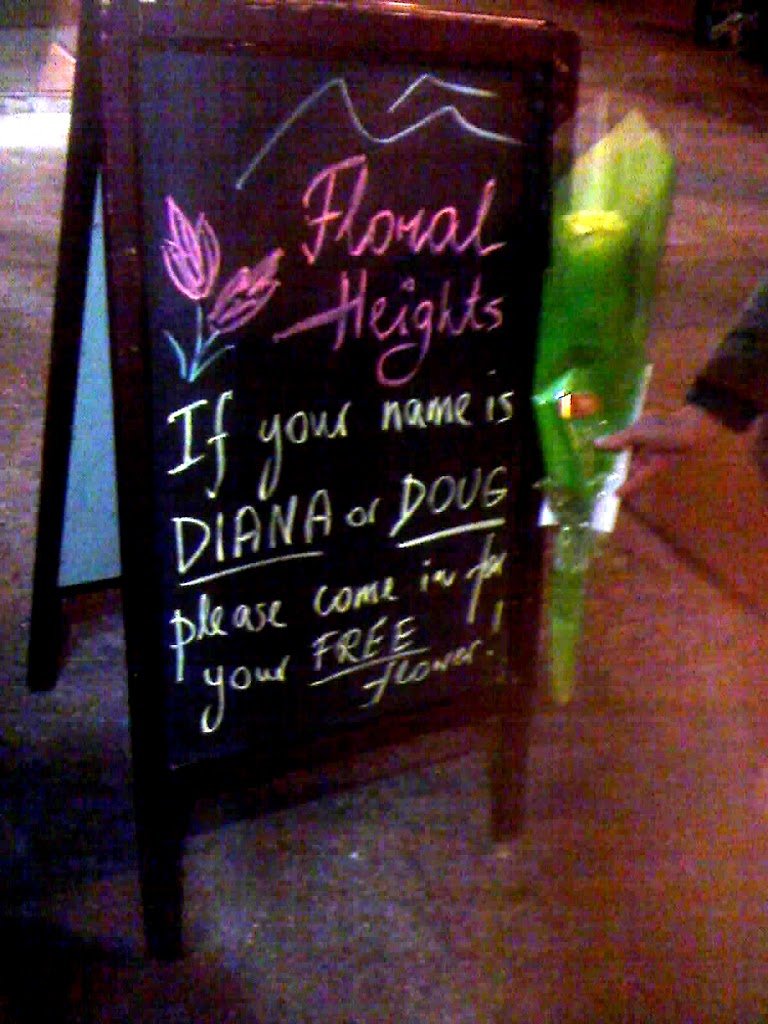 Floral
Heights
If your name is
DIANA or DOUG
please come in for
your FREE flower!